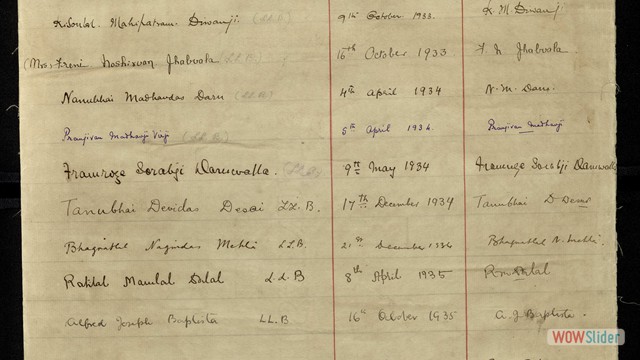 K. Sorilal Mahipatram Diwanji (LL.B.) 9th October 1933. K. M. Diwanji
(Mrs) Freni Noshirvan Jhabvala (LL.B.) 16th October 1933 F. N. Jhabvala
Nanubhai Madhavdas Daru (LL.B.) 4th April 1934 N. M. Daru.
Pranjivan Madhavji Virji (LL.B.) 6th April 1934. Pranjivan Madhavji
Framroze Sorabji Daruwalla. (LL.B.) 9th May 1934 Framroze Sorabji Daruwalla
Tanubhai Devidas Desai LL.B. 17th December 1934 Tanubhai D Desai
Bhagubhai Nagindas Mehta LL.B. 21st December 1934 N. Mehta.
Manilal Dalal L.L.B 8th April 1935 R. M. Dalal
Alfred Joseph Baptista LL.B. 16th October 1935 A. J. Baptista
WOWSlider